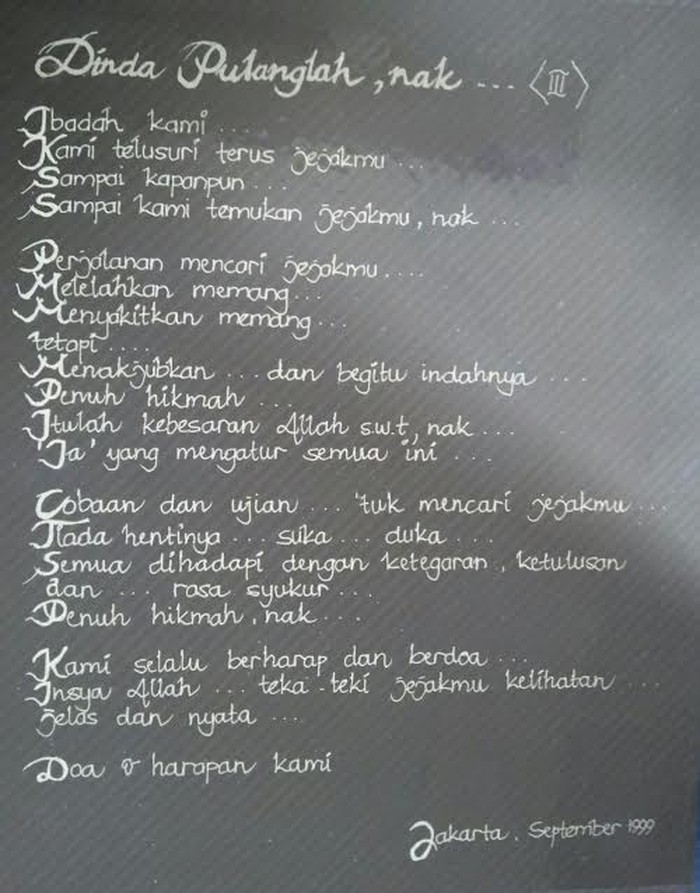 Dinda Pulanglah, nak ... <III>
Ibadah kami ....
Kami telusuri terus jejakmu ...
Sampai kapanpun ...
Sampai kami temukan jejakmu, nak ...
Perjalanan mencari jejakmu ....
Melelahkan memang ...
Menyakitkan memang ...
tetapi ....
Menakjubkan ... dan begitu indahnya ...
Penuh hikmah ...
Itulah kebesaran Allah s.w.t, nak ...
'Ia' yang mengatur semua ini ...
Cobaan dan ujian ... 'tuk mencari jejakmu ...
Tiada hentinya ... suka ... duka ...
Semua dihadapi dengan ketegaran, ketulusan
dan ... rasa syukur ...
Penuh hikmah, nak ...
Kami selalu berharap dan berdoa ...
Insya Allah ... teka-teki jejakmu kelihatan ...
jelas dan nyata ...
Doa & harapan kami
Jakarta, September 1999